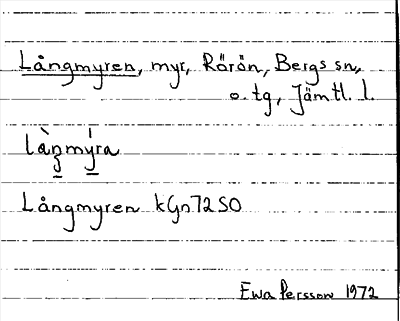 Långmyren, myr, Rörön, Bergs sn,
o. tg, Jämtl. l.
làŋmý̱ra
Långmyren kGn72SO
Ewa Persson 1972